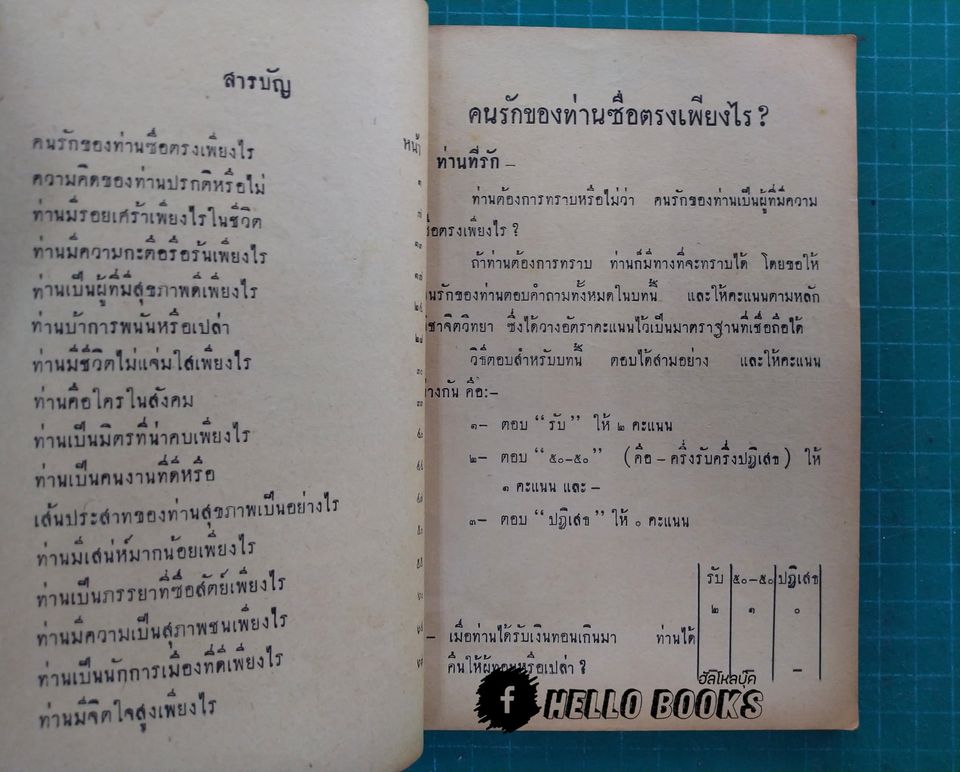 สารบัญ
หน้า
คนรักของท่านซื่อตรงเพียงไร
ความคิดของท่านปรกติหรือไม่
ท่านมีรอยเศร้าเพียงไรในชีวิต
ท่านมีความกะตือรือร้นเพียงไร
ท่านเป็นผู้ที่มีสุขภาพดีเพียงไร
ท่านบ้าการพนันหรือเปล่า
ท่านมีชีวิตไม่แจ่มใสเพียงไร
ท่านคือใครในสังคม
ท่านเป็นมิตรที่น่าคบเพียงไร
ท่านเป็นคนงานที่ดีหรือ
เส้นประสาทของท่านสุขภาพเป็นอย่างไร
ท่านมีเสน่ห์มากน้อยเพียงไร
ท่านเป็นภรรยาที่ซื่อสัตย์เพียงไร
ท่านมีความเป็นสุภาพชนเพียงไร
ท่านเป็นนักการเมืองที่ดีเพียงไร
ท่านมีจิตใจสูงเพียงไร
คนรักของท่านซื่อตรงเพียงไร?
ท่านที่รัก –
ท่านต้องการทราบหรือไม่ว่า คนรักของท่านเป็นผู้ที่มีความ
ซื่อตรงเพียงไร?
ถ้าท่านต้องการทราบ ท่านก็มีทางที่จะทราบได้ โดยขอให้
คนรักของท่านตอบคำถามทั้งหมดในบทนี้ และให้คะแนนตามหลัก
จิตวิทยา ซึ่งได้วางอัตราคะแนนไว้เป็นมาตราฐานที่เชื่อถือได้
วิธีตอบสำหรับบทนี้ ตอบได้สามอย่าง และให้คะแนน
ต่างกัน คือ:–
๑– ตอบ “รับ” ให้ ๒ คะแนน
๒– ตอบ “๕๐–๕๐” (คือ – ครึ่งรับครึ่งปฏิเสธ) ให้
๑ คะแนน และ –
๓– ตอบ “ปฏิเสธ” ให้ ๐ คะแนน
รับ ๕๐–๕๐ ปฏิเสธ
๒ ๑ ๐
– เมื่อท่านได้รับเงินทอนเกินมา ท่านได้
คืนให้ผู้ทอนหรือเปล่า? –
ฮัลโหลบุ๊ค
f HELLO BOOKS